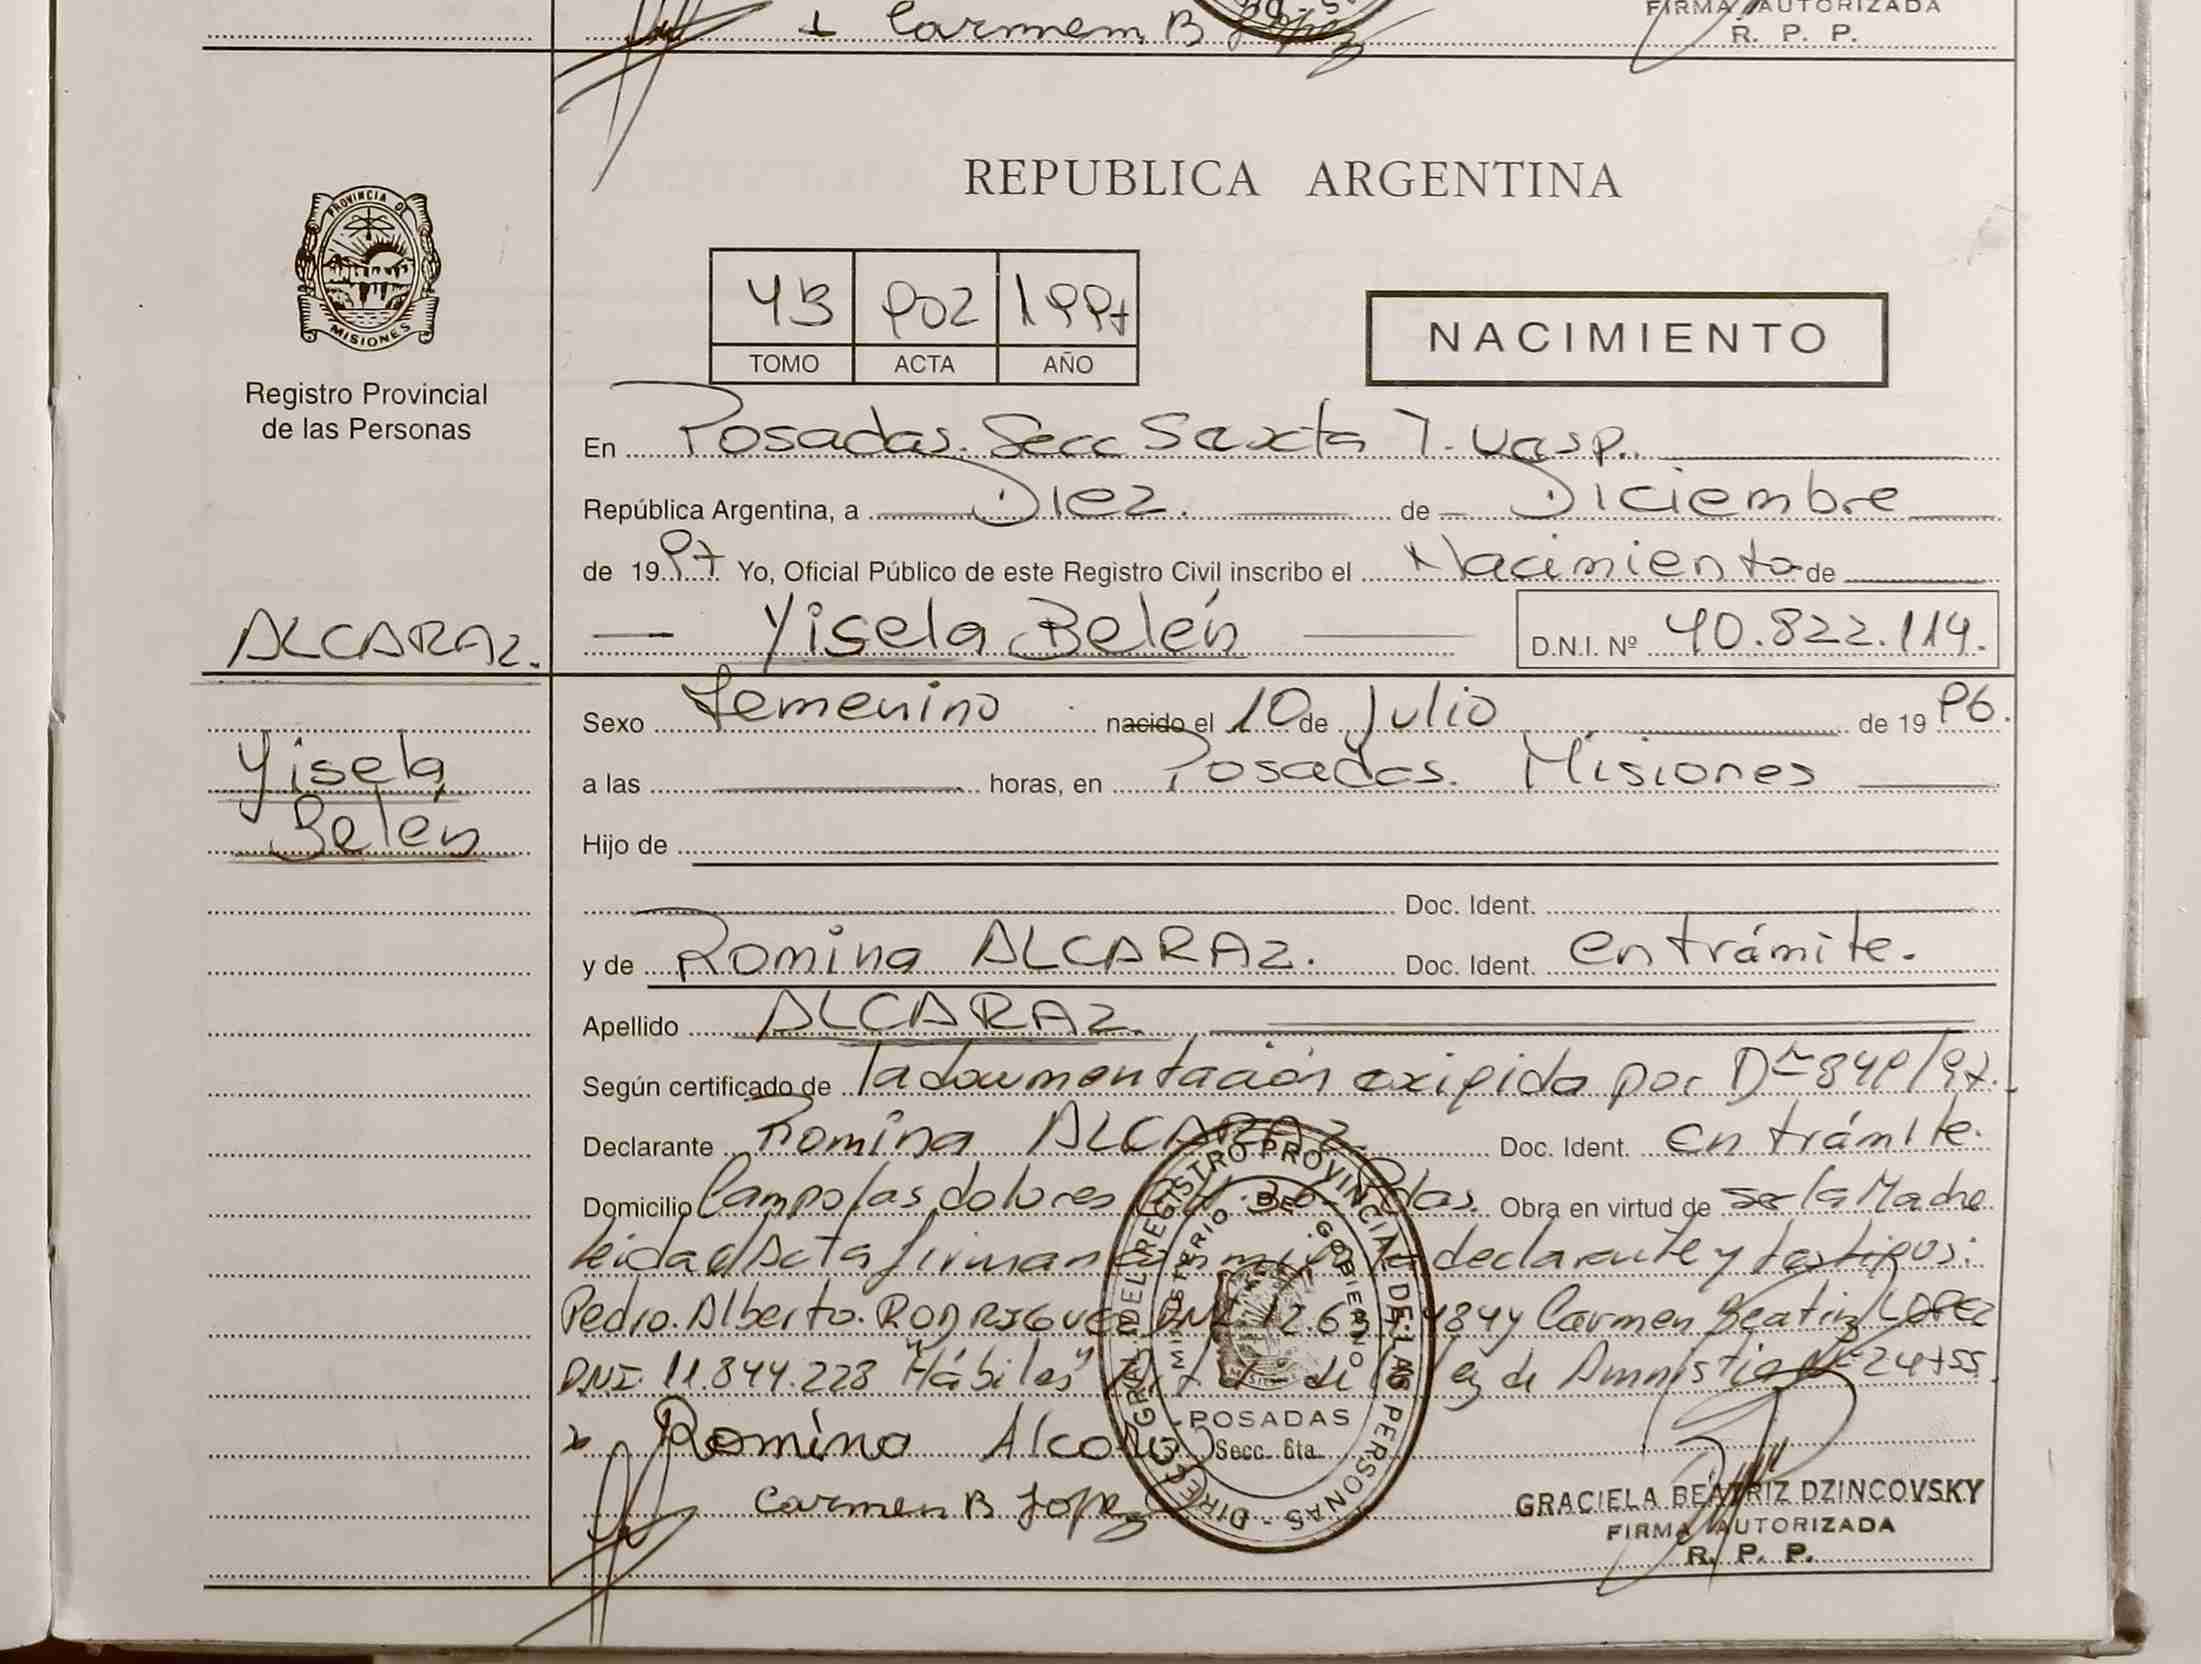 Carmen B López
FIRMA AUTORIZADA
R. P. P.
PROVINCIA DE
MISIONES
Registro Provincial
de las Personas
REPUBLICA ARGENTINA
4B 902 1997
TOMO ACTA AÑO
NACIMIENTO
En Posadas. Secc Sexta T. Uasp.
República Argentina, a Diez. de Diciembre
de 1997 Yo, Oficial Público de este Registro Civil inscribo el Nacimiento de
Yisela Belén D.N.I. Nº 40.822.114.
ALCARAZ.
Yisela
Belén
Sexo Femenino nacido el 10 de Julio de 1996.
a las horas, en Posadas. Misiones
Hijo de
Doc. Ident.
y de Romina ALCARAZ. Doc. Ident. en trámite.
Apellido ALCARAZ.
Según certificado de la documentación exigida por Dto 849/97.
Declarante Romina ALCARAZ Doc. Ident. en trámite.
Domicilio Campo las dolores Pdas. Obra en virtud de ser la Madre
leída el Acta firman conmigo la declarante y testigos:
Pedro. Alberto. RODRIGUEZ DNI 12.63 484 y Carmen Beatriz LOPEZ
DNI. 11.844.228 "Hábiles" de Amnistia Nº 24755
x Romina Alcaraz
Carmen B López
DIREC. GRAL. DEL REGISTRO PROVINCIAL DE LAS PERSONAS
MINISTERIO DE GOBIERNO
POSADAS
Secc. 6ta.
GRACIELA BEATRIZ DZINCOVSKY
FIRMA AUTORIZADA
R. P. P.